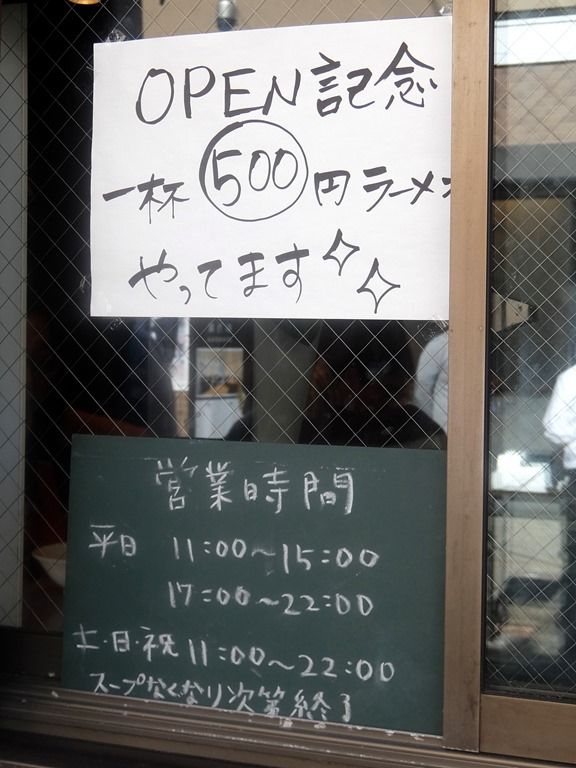 OPEN記念
一杯500円ラーメン
やってます
営業時間
平日 11:00〜15:00
17:00〜22:00
土・日・祝 11:00〜22:00
スープなくなり次第終了